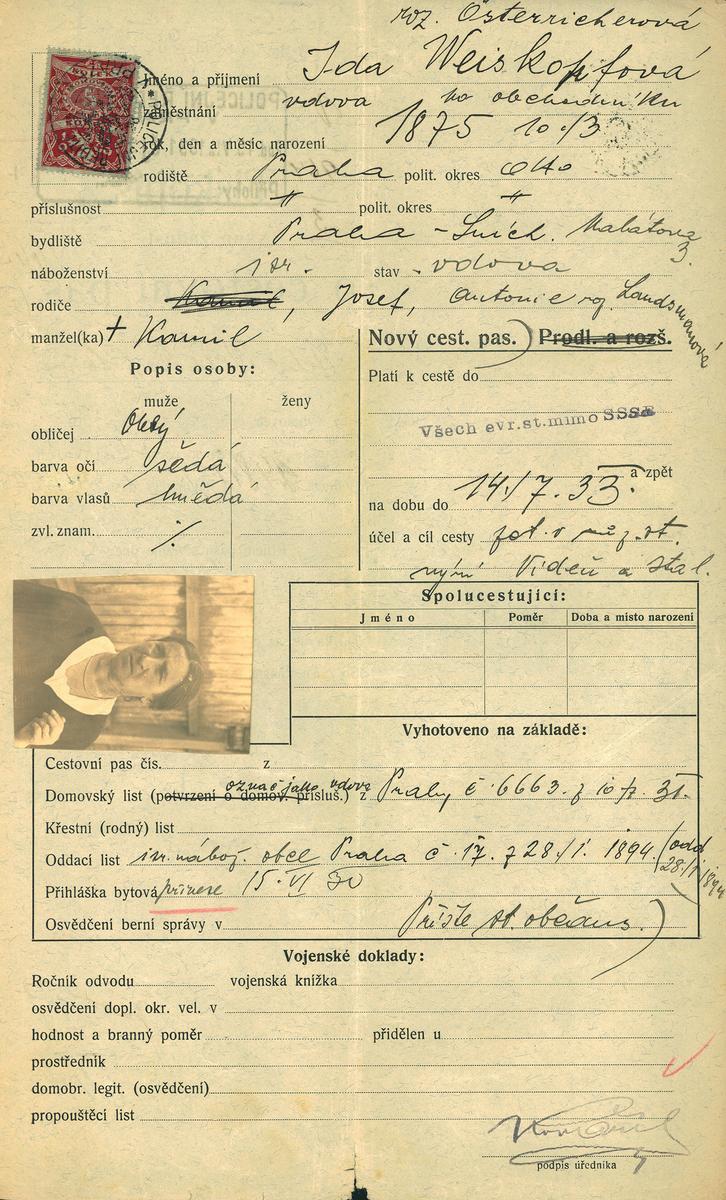 roz. Österricherová
jméno a příjmení Ida Weiskopfová
zaměstnání vdova po obchodníku
rok, den a měsíc narození 1875 10./3
rodiště Praha polit. okres dtto
příslušnost " polit. okres "
bydliště Praha - Smích. Malátova 3.
náboženství isr. stav vdova
rodiče Kamil, Josef, Antonie roz. Landsmanová
manžel(ka) + Kamil
Nový cest. pas. Prodl. a rozš.
Popis osoby:
Platí k cestě do
muže ženy
Všech evr.st.mimo SSSR
obličej Oblý
barva očí šedá
a zpět
barva vlasů hnědá
na dobu do 14./7.33.
zvl. znam. ./.
účel a cíl cesty
nyní Vídeň a Ital.
Spolucestující:
Jméno Poměr Doba a místo narození
Vyhotoveno na základě:
Cestovní pas čís. z
označ. jako vdova
Domovský list (potvrzení o domov. přísluš.) z Prahy č 6663. z 31.
Křestní (rodný) list
Oddací list isr. nábož. obce Praha č. 17. z 28./1. 1894 (odd 28./1. 1894)
Přihláška bytová přinese 15. VI 30
Osvědčení berní správy v
Příště st. občans.)
Vojenské doklady:
Ročník odvodu vojenská knížka
osvědčení dopl. okr. vel. v
hodnost a branný poměr přidělen u
prostředník
domobr. legit. (osvědčení)
propouštěcí list
podpis úředníka